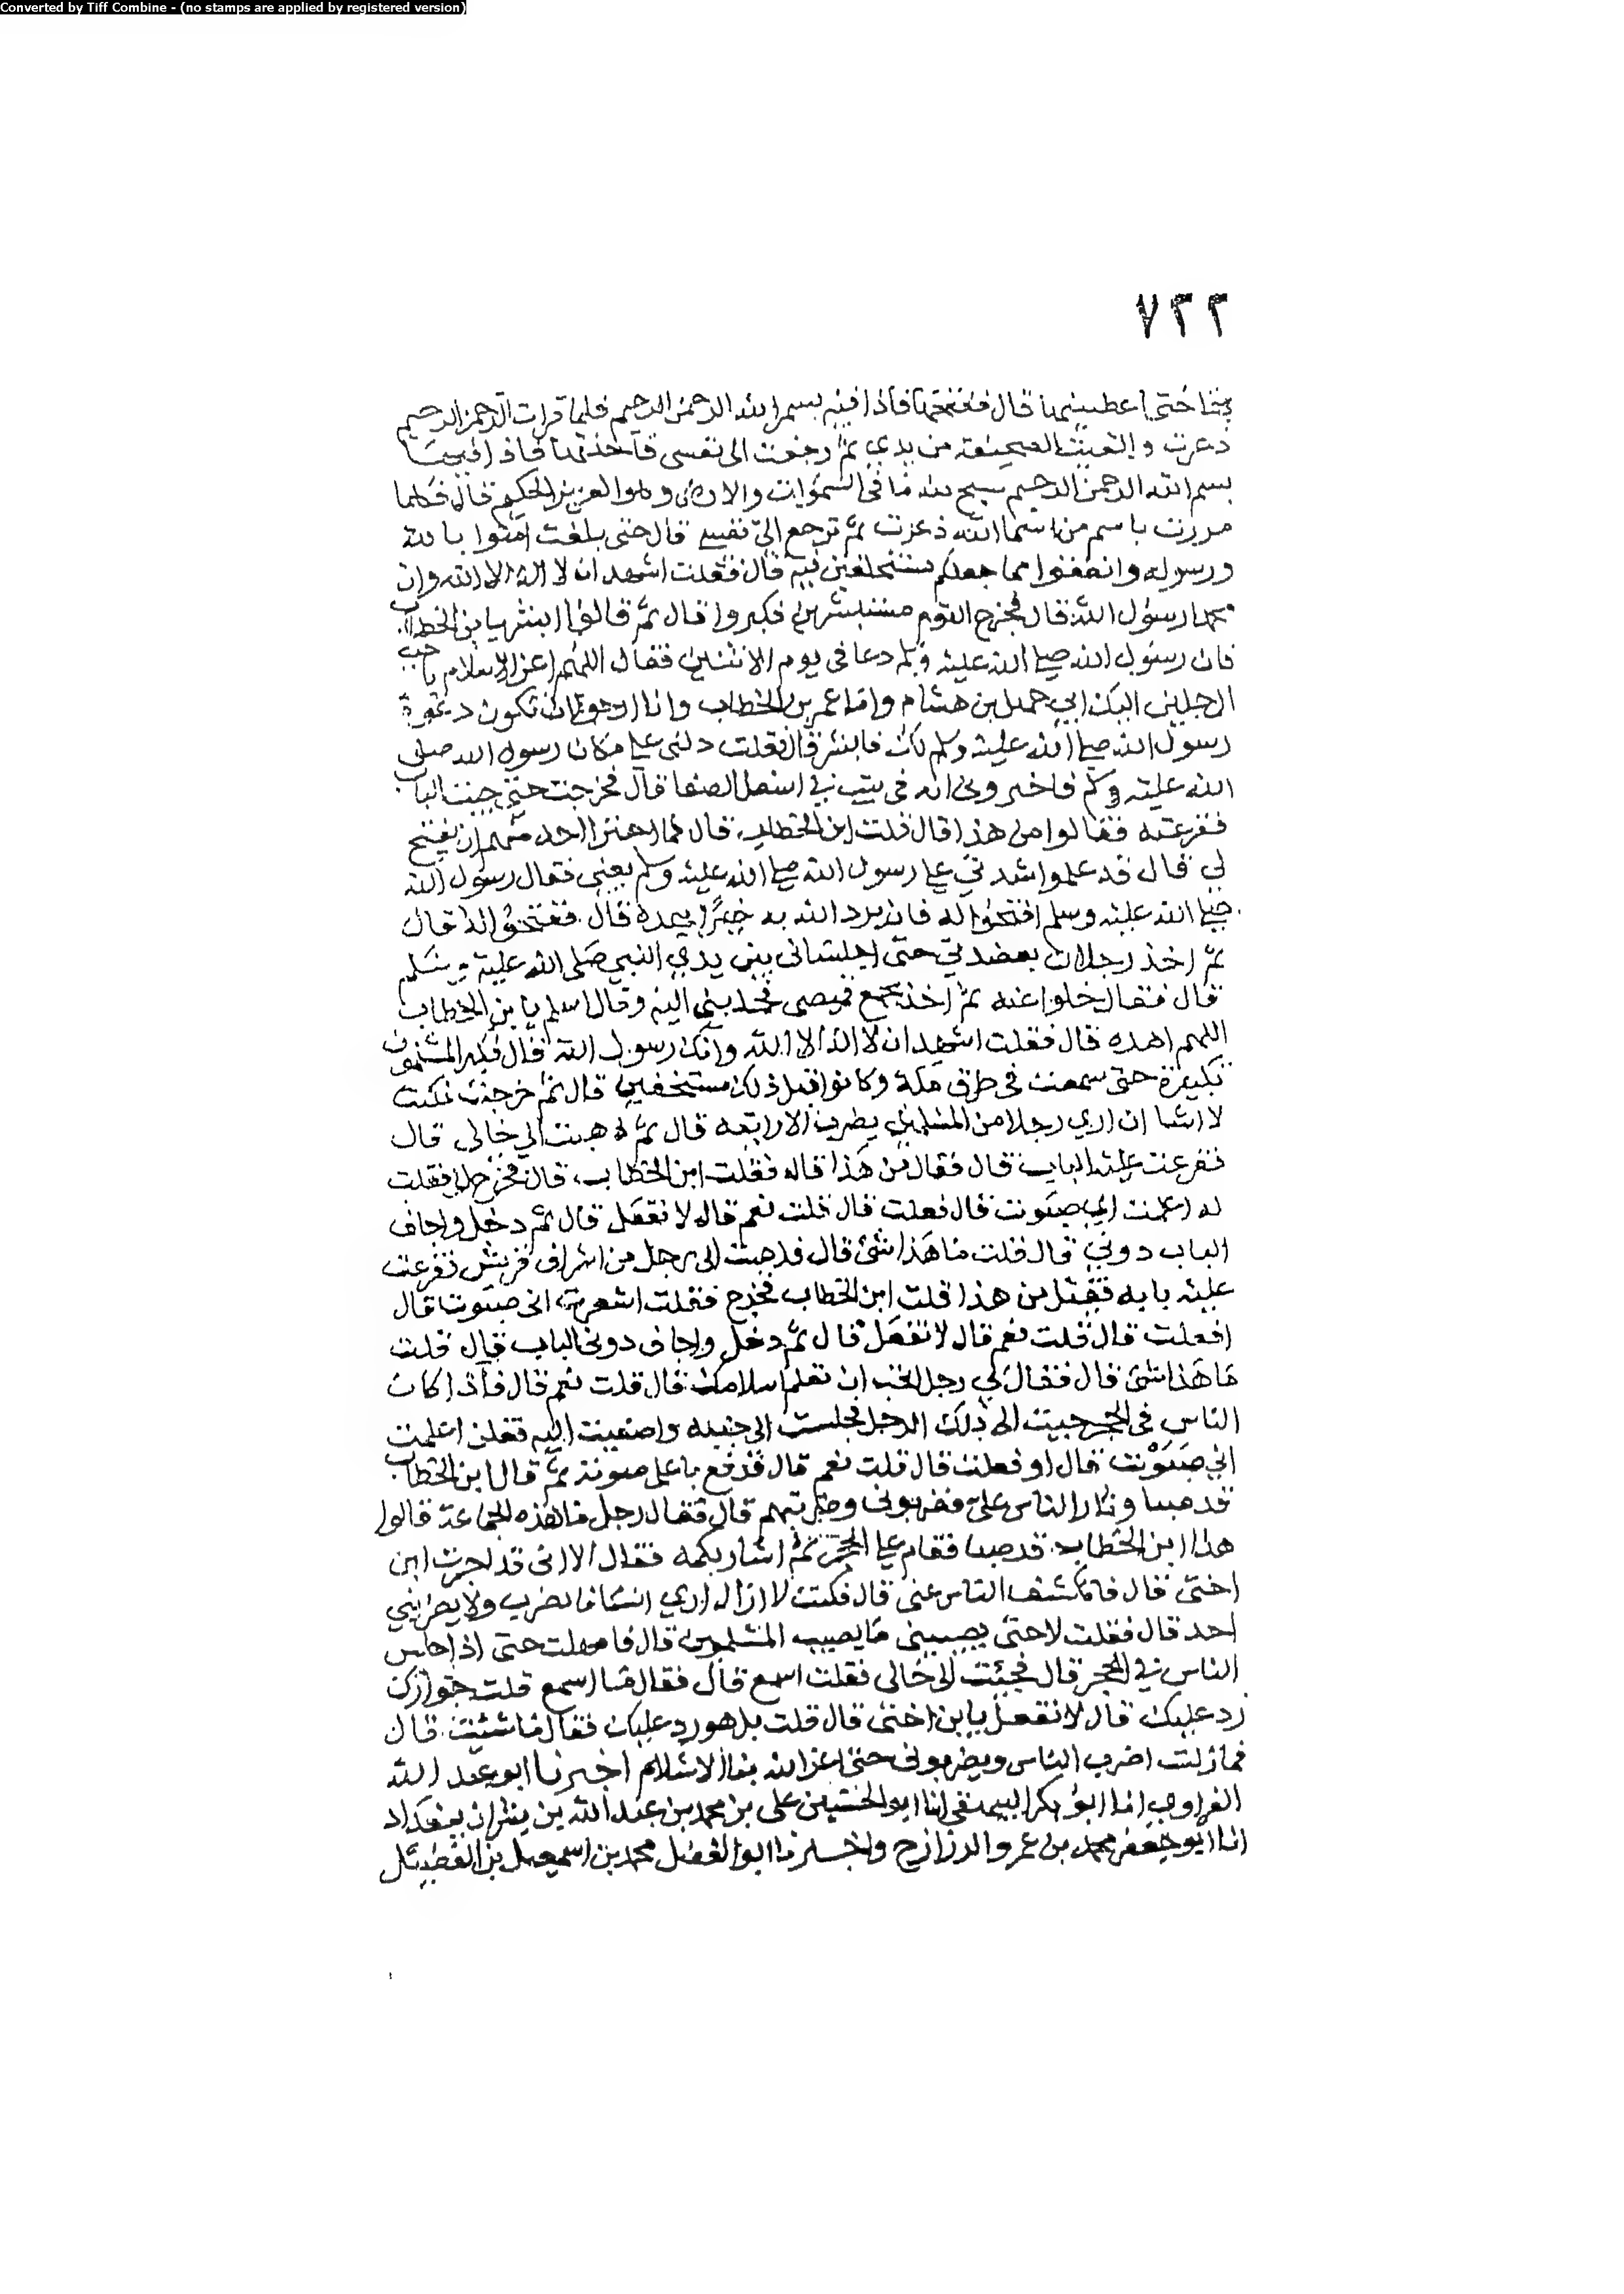 Converted by Tiff Combine - (no stamps are applied by registered version)
٧٢٢
بها حتى اعطيتنيها قال ففتحتها فاذا فيه بسم الله الرحمن الرحيم فلما قرات الرحمن الرحيم
ذعرت والقيت الصحيفة من يدي ثم رجعت الى نفسي فاخذتها فاذا فيها
بسم الله الرحمن الرحيم سبح لله ما في السموات والارض وهو العزيز الحكيم قال فكلما
مررت باسم من اسما الله ذعرت ثم ترجع الي نفسي قال حتى بلغت امنوا بالله
ورسوله وانفقوا مما جعلكم مستخلفين فيه قال فقلت اشهد ان لا اله الا الله وان
محمدا رسول الله قال فخرج القوم مستبشرين فكبروا قال ثم قالوا ابشر يا بن الخطاب
فان رسول الله صلى الله عليه وسلم دعا في يوم الاثنين فقال اللهم اعز الاسلام باحب
الرجلين اليك ابي جهل بن هشام واما عمر بن الخطاب وانا ارجوا ان تكون دعوة
رسول الله صلى الله عليه وسلم لك فابشر قال فقلت دلني على مكان رسول الله صلى
الله عليه وسلم فاخبروني انه في بيت في اسفل الصفا قال فخرجت حتى جيت الباب
فقرعته فقالوا من هذا قال قلت ابن الخطاب قال فما اجترا احد منهم ان يفتح
لي قال قد علموا شدتي على رسول الله صلى الله عليه وسلم يعني فقال رسول الله
صلى الله عليه وسلم افتحوا له فان يرد الله به خيرا يهده قال ففتحوا له قال
ثم اخذ رجلان بعضدي حتى اجلساني بين يدي النبي صلى الله عليه وسلم
قال فقال خلوا عنه ثم اخذ بجمع قميصي فجذبني اليه وقال اسلم يا بن الخطاب
اللهم اهده قال فقلت اشهد ان لا اله الا الله وانك رسول الله قال فكبر المسلمون
تكبيرة حتى سمعت في طرق مكة وكانوا قبل ذلك مستخفين قال ثم خرجت فكنت
لا اشا ان اري رجلا من المسلمين يضرب الا رايته قال ثم ذهبت الي خالي قال
فقرعت عليه الباب قال فقال من هذا قال فقلت ابن الخطاب قال فخرج الي فقلت
له اعلمت اني صبوت قال فعلت قال قلت نعم قال لا تفعل قال ثم دخل واجاف
الباب دوني قال قلت ما هذا شئ قال فذهبت الى رجل من اشراف قريش فقرعت
عليه بابه فقيل من هذا قلت ابن الخطاب فخرج فقلت اشعرت اني صبوت قال
افعلت قال قلت نعم قال لا تفعل قال ثم دخل واجاف دوني الباب قال قلت
ما هذا شئ قال فقال لي رجل اتحب ان تعلم اسلامك قال قلت نعم قال فاذا كان
الناس في الحجر جيت الى ذلك الرجل فجلست الى جنبه واصغيت اليه فقلت اعلمت
اني صبوت قال او فعلت قال قلت نعم قال فرفع باعلى صوته ثم قال ابن الخطاب
قد صبا وثار الناس علي فضربوني وضربتهم قال فقال رجل ما هذه الجماعة قالوا
هذا ابن الخطاب قد صبا فقام على الحجر ثم اشار بكمه فقال الا اني قد اجرت ابن
اختي قال فانكشف الناس عني قال فكنت لا ازال اري انسانا يضرب ولا يضربني
احد قال فقلت لا حتى يصيبني ما يصيب المسلمين قال فامهلت حتى اذا جلس
الناس في الحجر قال فجئت الى خالي فقلت اسمع قال فقال ما اسمع قلت جوارك
رد عليك قال لا تفعل يا بن اختي قال قلت بل هو رد عليك فقال ما شئت قال
فما زلت اضرب الناس ويضربوني حتى اعز الله بنا الاسلام اخبرنا ابو عبد الله
الفراوي انا ابو بكر البيهقي انا ابو الحسين على بن محمد بن عبد الله بن بشران ببغداد
انا ابو جعفر محمد بن عمرو الرزاز ح واخبرنا ابو الفضل محمد بن اسمعيل بن الفضيل